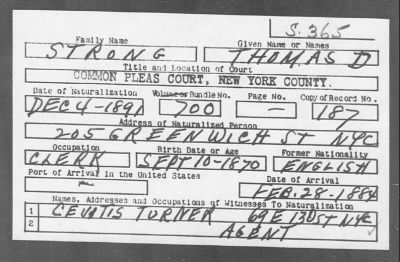 S.365
Family Name Given Name or Names
STRONG THOMAS D
Title and Location of Court
COMMON PLEAS COURT, NEW YORK COUNTY.
Date of Naturalization Volume or Bundle No. Page No. Copy of Record No.
DEC 4-1891 700 — 187
Address of Naturalized Person
205 GREENWICH ST NYC
Occupation Birth Date or Age Former Nationality
CLERK SEPT 10-1870 ENGLISH
Port of Arrival in the United States Date of Arrival
— FEB. 28-1884
Names, Addresses and Occupations of Witnesses To Naturalization
1 TURNER 69 E 130 ST NYC
2 AGENT